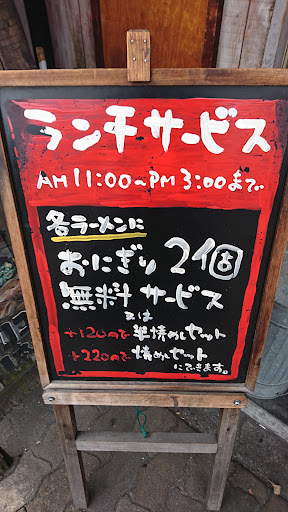 ランチサービス
AM11:00〜PM3:00まで
各ラーメンに
おにぎり2個
無料サービス
又は
+120円で半焼めしセット
+220円で焼めしセット
にできます。